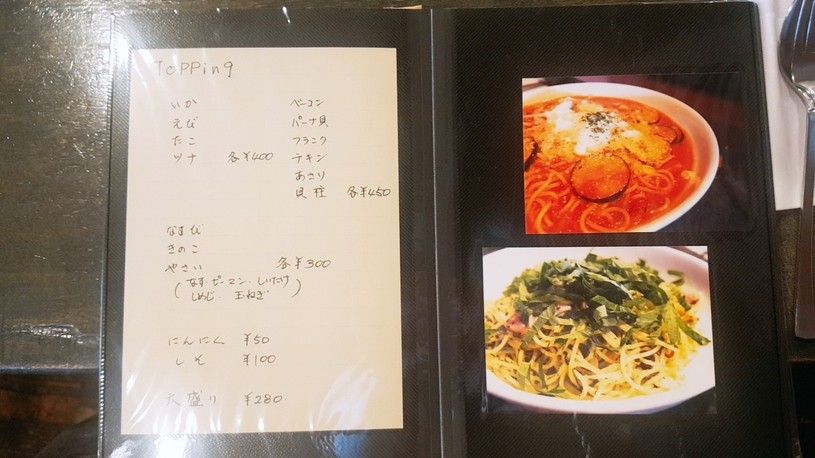 Topping
いか
えび
たこ
ツナ 各¥400
ベーコン
パーナ貝
フランク
チキン
あさり
貝柱 各¥450
なすび
きのこ
やさい 各¥300
(なす.ピーマン.しいたけ
しめじ.玉ねぎ)
にんにく ¥50
しそ ¥100
大盛り ¥280